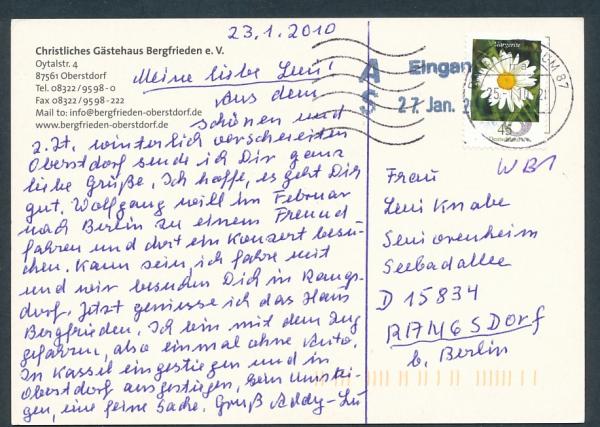 23.1.2010
Christliches Gästehaus Bergfrieden e. V.
Oytalstr. 4
87561 Oberstdorf
Tel. 08322/9598-0
Fax 08322/9598-222
Mail to: info@bergfrieden-oberstdorf.de
www.bergfrieden-oberstdorf.de
Meine liebe Leni!
Aus dem
schönen und
z.Zt. winterlich verschneiten
Oberstdorf sende ich Dir ganz
liebe Grüße. Ich hoffe, es geht Dir
gut. Wolfgang will im Februar
nach Berlin zu einem Freund
fahren und dort ein Konzert besu-
chen. Kann sein, ich fahre mit
und wir besuchen Dich in Rangs-
dorf. Jetzt geniesse ich das Haus
Bergfrieden. Ich bin mit dem Zug
gefahren, also einmal ohne Auto.
In Kassel eingestiegen und in
Oberstdorf ausgestiegen, kein Umstei-
gen, eine feine Sache. Gruß Addy-Lu
A
S
Eingan
27. Jan. 2
Margerite
45
25.
87
WB1
Frau
Leni Knabe
Seniorenheim
Seebadallee
D 15834
RANGSDorf
b. Berlin